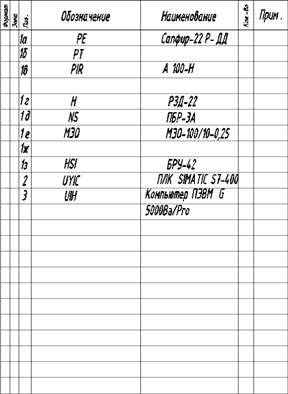 Формат Зона Поз. Обозначение Наименование Кол-во Прим.
1а PE Сапфир-22 Р-ДД
1б PT
1в PIR А 100-Н
1г H РЗД-22
1д NS ПБР-3А
1е МЭО МЭО-100/10-0,25
1ж
1з HSI БРУ-42
2 UYIC ПЛК SIMATIC S7-400
3 UIH Компьютер ПЭВМ G
5000Ва/Pro